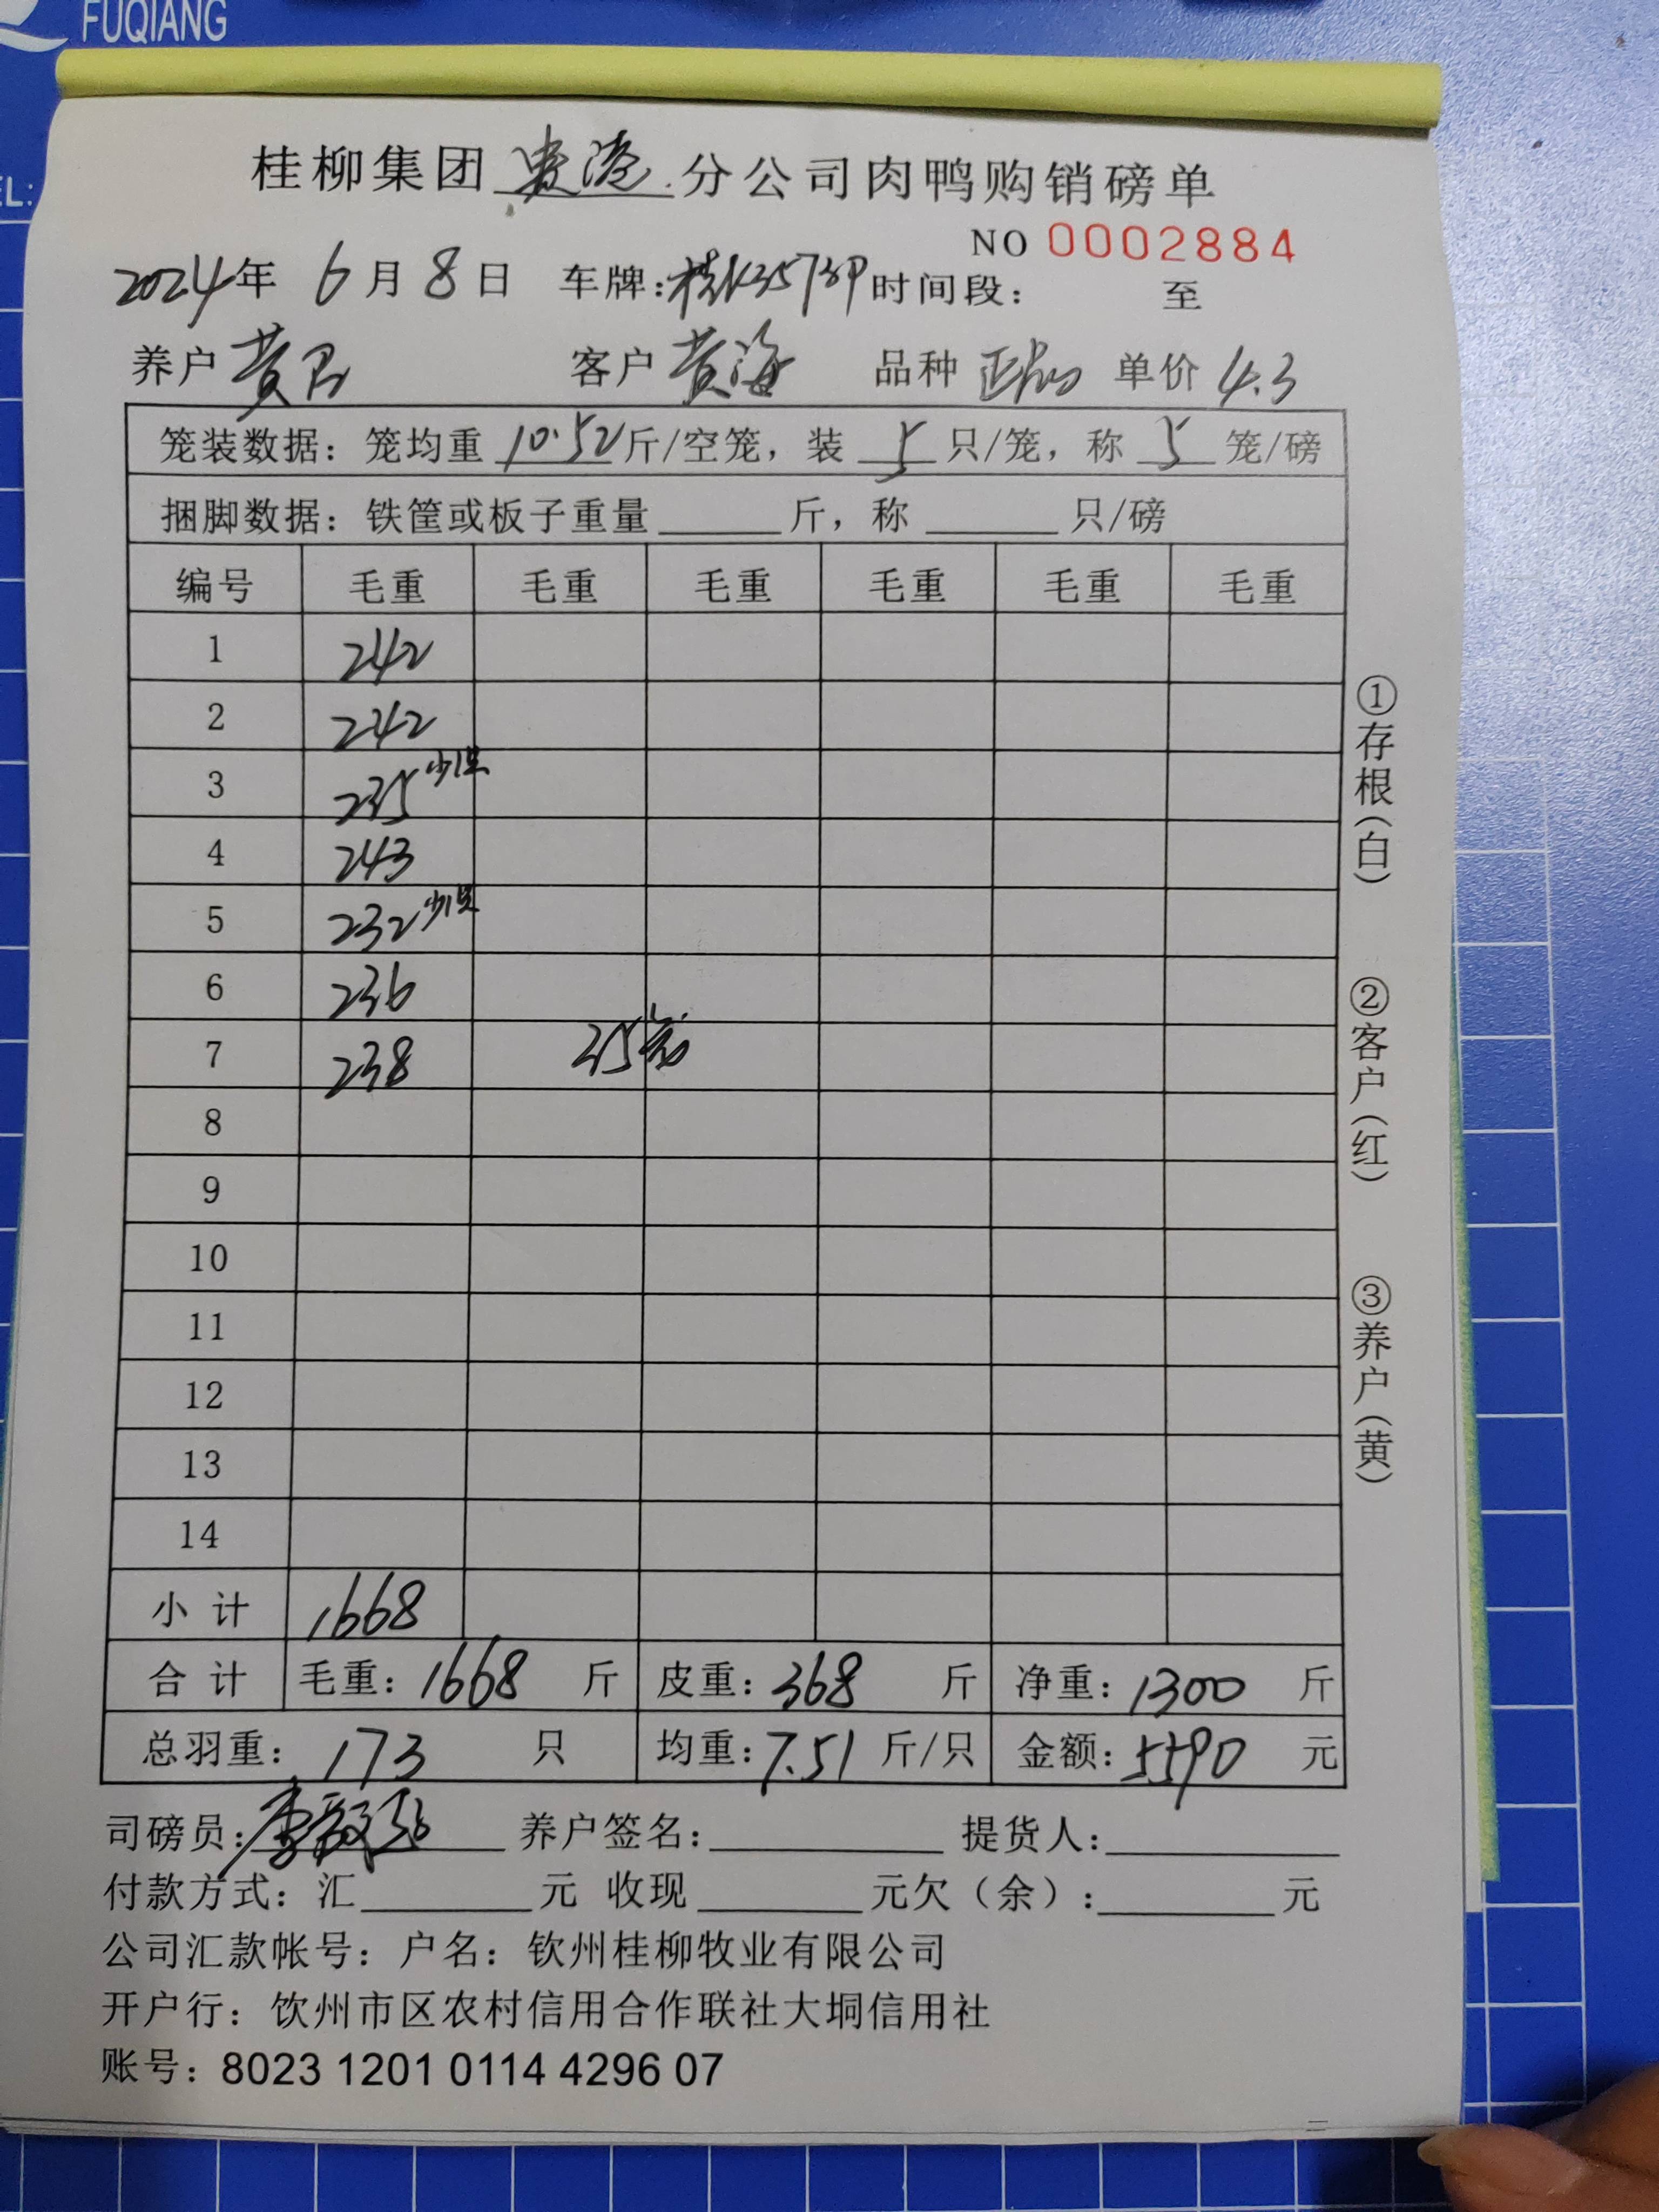 FUQIANG
EL:
桂柳集团 贵港 分公司肉鸭购销磅单
NO 0002884
2024年 6月 8日 车牌:桂K3573P 时间段: 至
养户 黄 客户 黄海 品种 单价 4.3
笼装数据: 笼均重 10.52 斤/空笼, 装 5 只/笼, 称 5 笼/磅
捆脚数据: 铁筐或板子重量 斤, 称 只/磅
编号 毛重 毛重 毛重 毛重 毛重 毛重
1 242
2 242
3 235 少1只
4 243
5 232 少1只
6 236
7 238 35笼
8
9
10
11
12
13
14
小计 1668
合计 毛重: 1668 斤 皮重: 368 斤 净重: 1300 斤
总羽重: 173 只 均重: 7.51 斤/只 金额: 5590 元
司磅员: 李 养户签名: 提货人:
付款方式: 汇 元 收现 元欠(余): 元
公司汇款帐号: 户名: 钦州桂柳牧业有限公司
开户行: 饮州市区农村信用合作联社大垌信用社
账号: 8023 1201 0114 4296 07
①存根(白)
②客户(红)
③养户(黄)